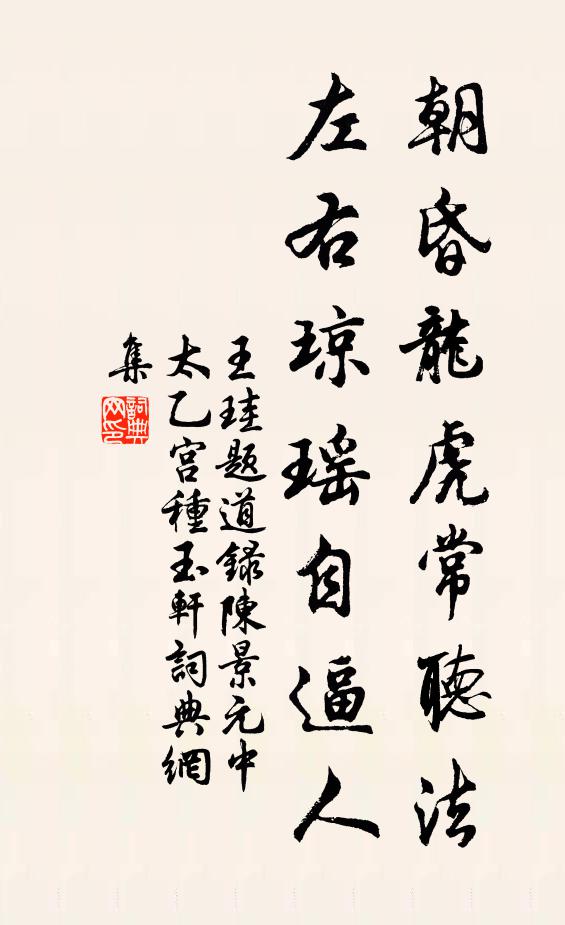 朝昏龍虎常聽法
左右琼瑶自逼人
王珪题道録陳景元中
太乙宫種玉軒詞典網
集
詞典
网印